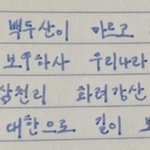 백두산이 마르고
보우하사 우리나라
삼천리 화려강산
대한으로 길이